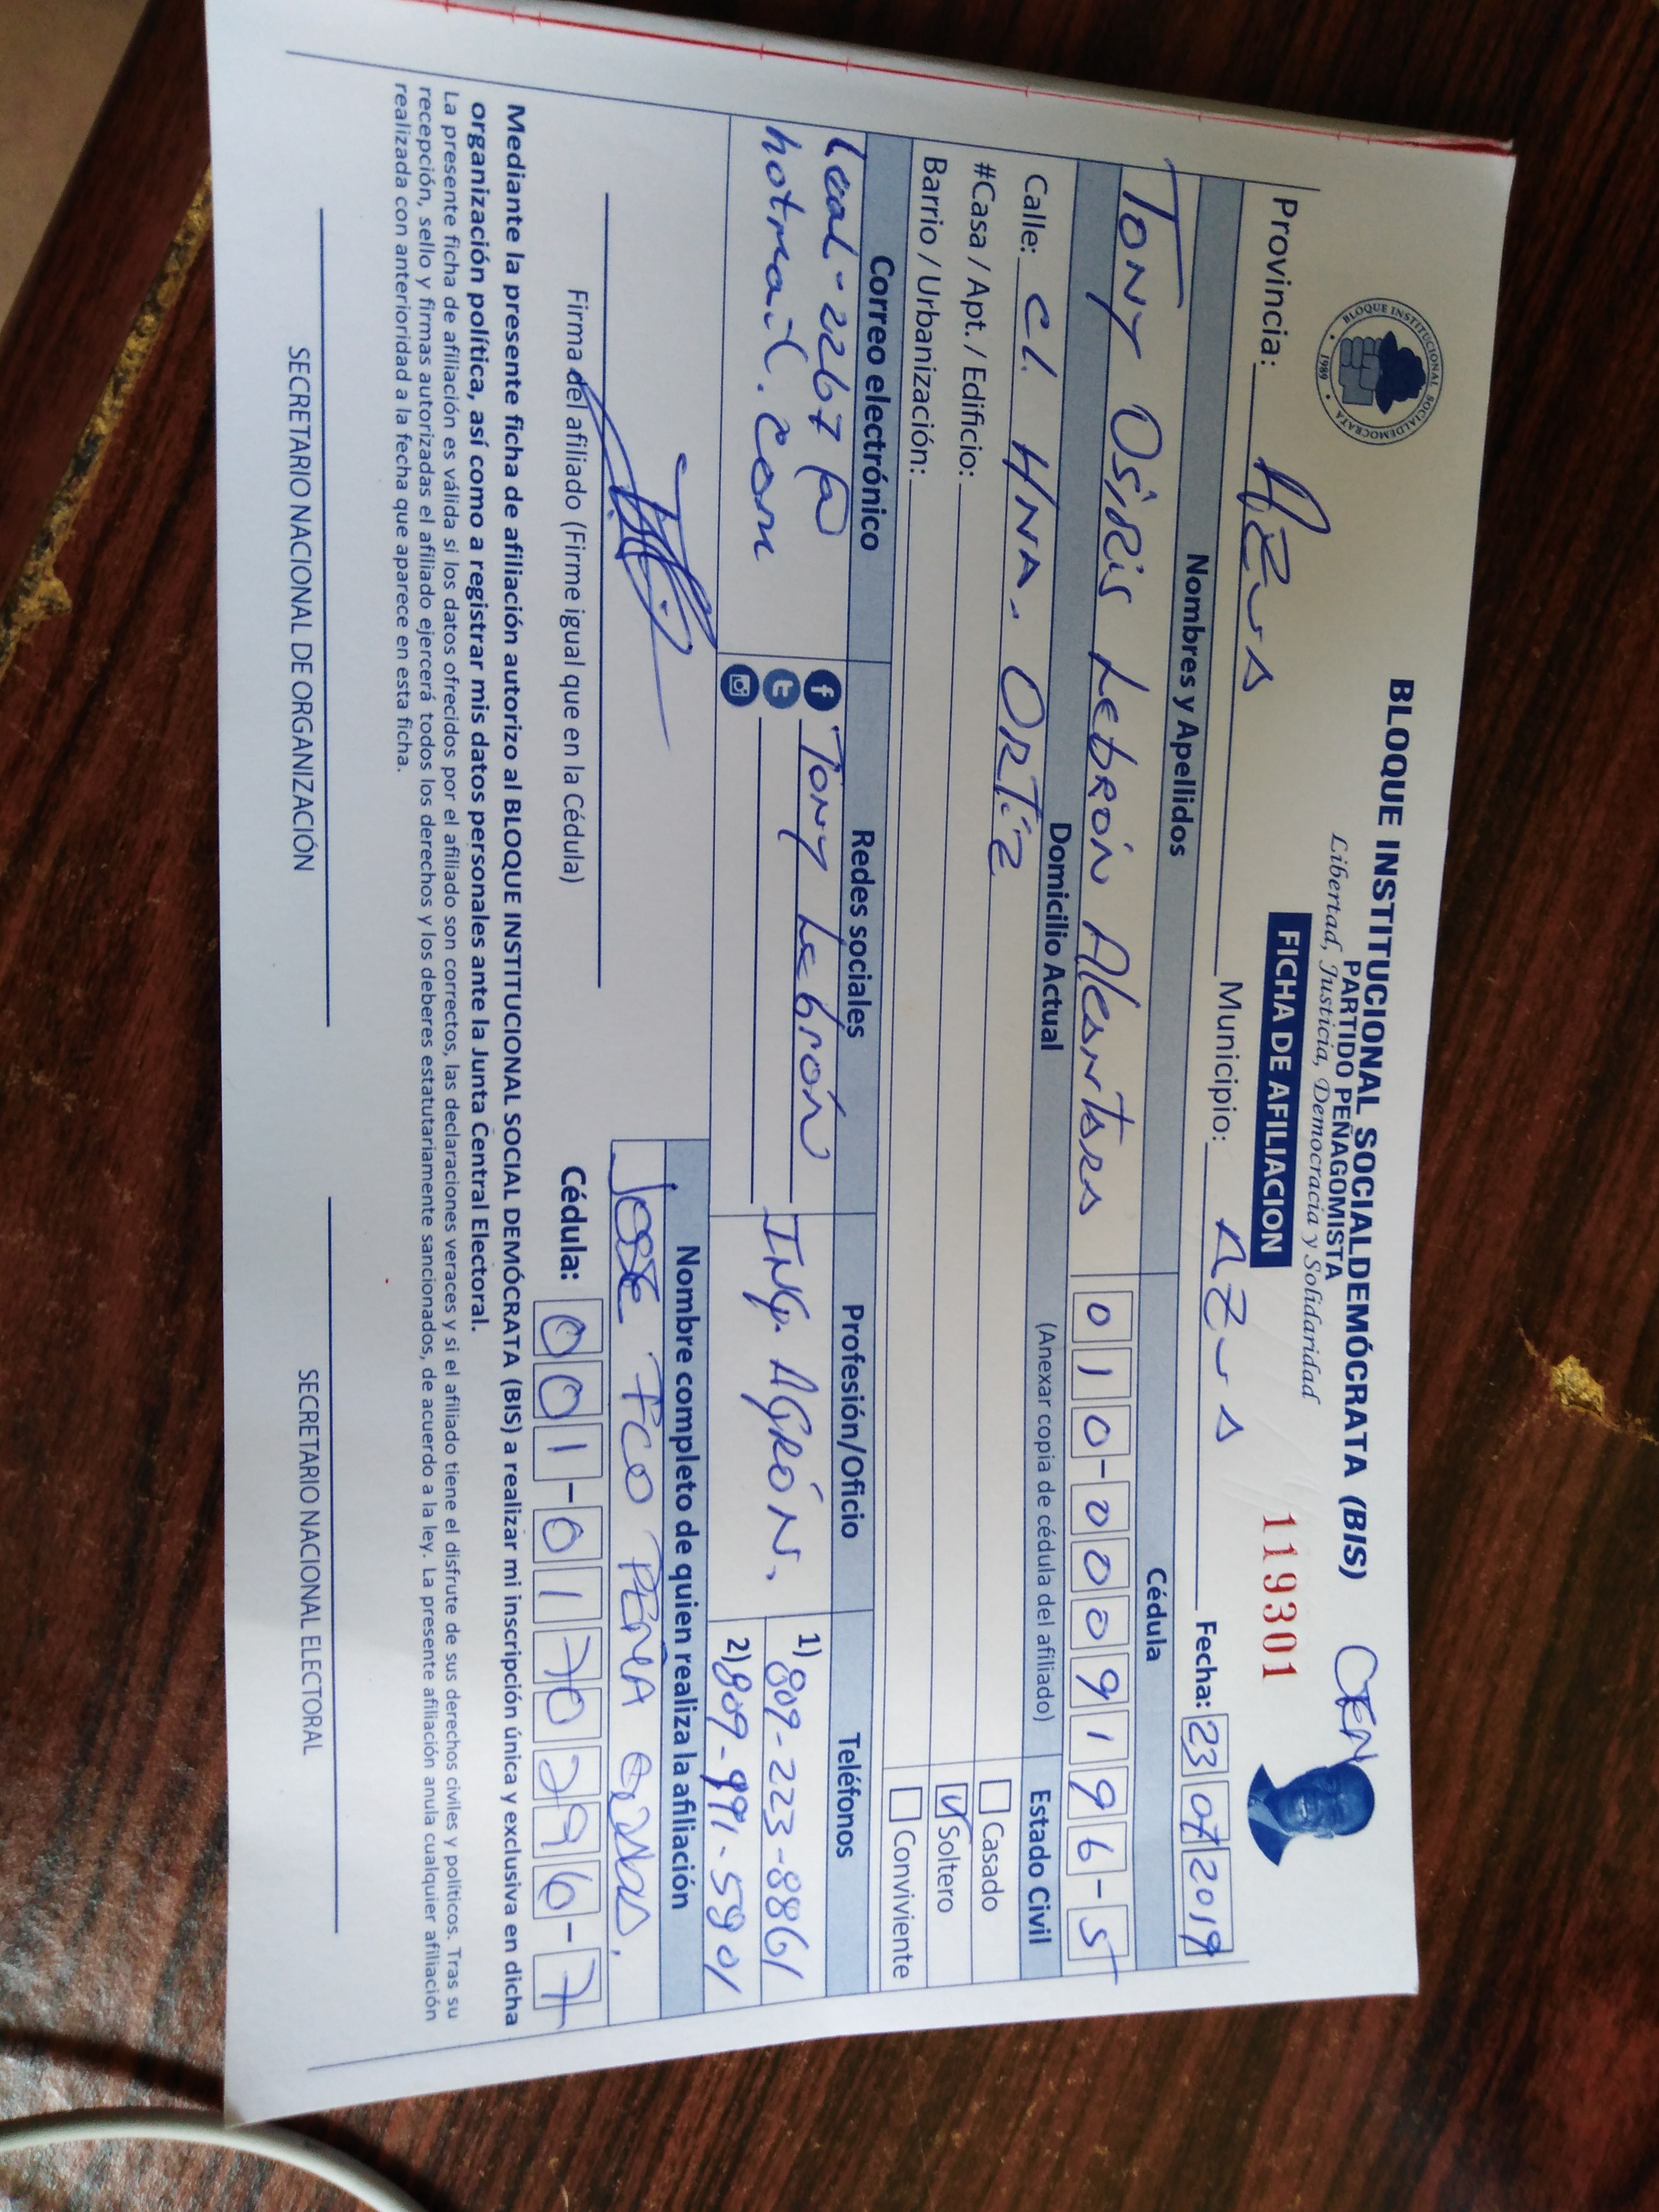 BLOQUE INSTITUCIONAL SOCIALDEMÓCRATA (BIS)
PARTIDO PEÑAGOMISTA
Libertad, Justicia, Democracia y Solidaridad
FICHA DE AFILIACION
119301
BLOQUE INSTITUCIONAL SOCIALDEMOCRATA
1989
CEN
Provincia: Azua Municipio: Azua Fecha: 23 07 2019
Nombres y Apellidos Cédula
Tony Osiris Lebrón Alcantara 010-0009196-5
Domicilio Actual (Anexar copia de cédula del afiliado) Estado Civil
Calle: C/. HNA. ORTiz
#Casa / Apt. / Edificio:
Barrio / Urbanización:
Casado
Soltero
Conviviente
Correo electrónico Redes sociales Profesión/Oficio Teléfonos
Leal-2267@
hotmail.com
Tony Lebrón
INg. AGRÓN.
1) 809-223-8861
2) 809-991-5901
Nombre completo de quien realiza la afiliación
Jose Fco Peña
Firma del afiliado (Firme igual que en la Cédula) Cédula: 001-0170296-7
Mediante la presente ficha de afiliación autorizo al BLOQUE INSTITUCIONAL SOCIAL DEMÓCRATA (BIS) a realizar mi inscripción única y exclusiva en dicha
organización política, así como a registrar mis datos personales ante la Junta Central Electoral.
La presente ficha de afiliación es válida si los datos ofrecidos por el afiliado son correctos, las declaraciones veraces y si el afiliado tiene el disfrute de sus derechos civiles y políticos. Tras su
recepción, sello y firmas autorizadas el afiliado ejercerá todos los derechos y los deberes estatutariamente sancionados, de acuerdo a la ley. La presente afiliación anula cualquier afiliación
realizada con anterioridad a la fecha que aparece en esta ficha.
SECRETARIO NACIONAL DE ORGANIZACIÓN SECRETARIO NACIONAL ELECTORAL